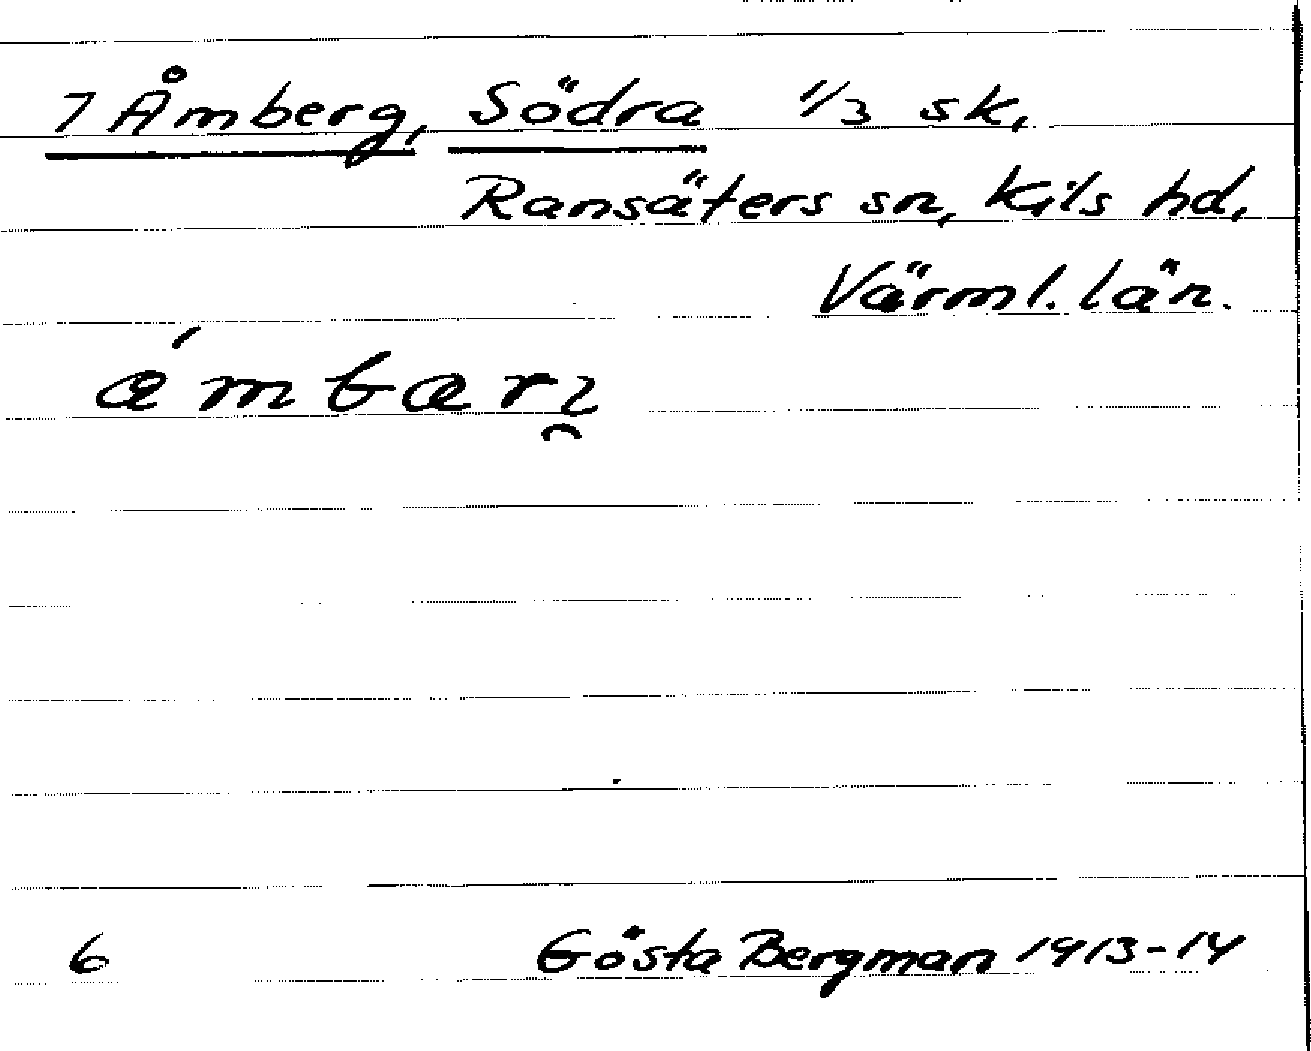 7 Åmberg, Södra 1/3 sk.
Ransäters sn, Kils hd.
Värml. län.
6 Gösta Bergman 1913-14